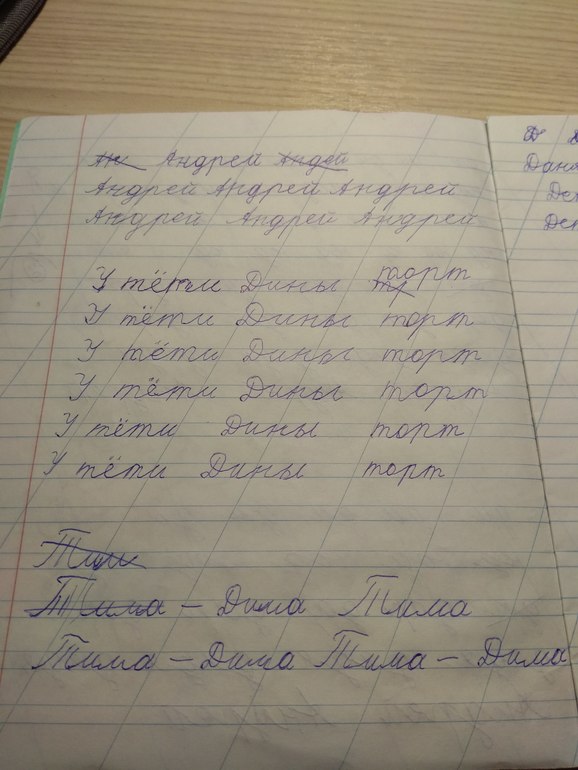 Ан Андрей Андей
Андрей Андрей Андрей
Андрей Андрей Андрей
У тёти Дины тр торт
У тёти Дины торт
У тёти Дины торт
У тёти Дины торт
У тёти Дины торт
У тёти Дины торт
Тим
Тима – Дима Тима
Тима – Дима Тима – Дима
Д
Дани
Ден
Ден